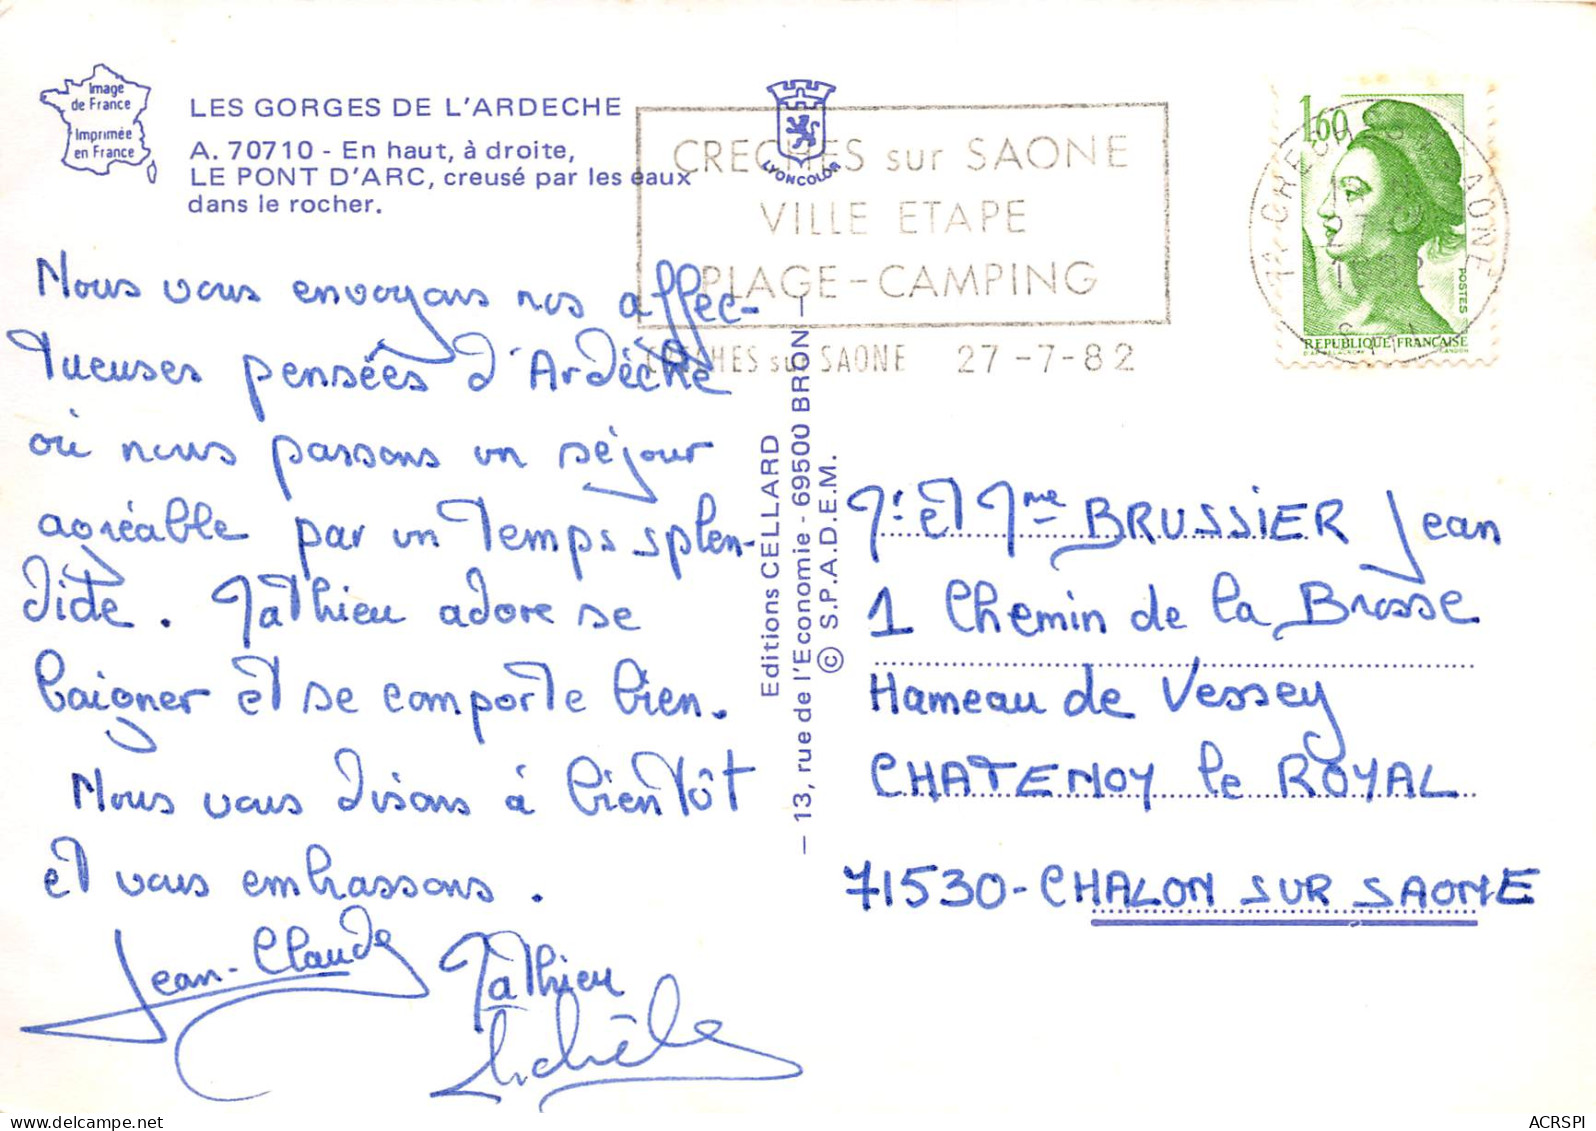 Image
de France
Imprimée
en France
LES GORGES DE L'ARDECHE
A. 70710 - En haut, à droite,
LE PONT D'ARC, creusé par les eaux
dans le rocher.
LYONCOLOR
CRECHES sur SAONE
VILLE ETAPE
PLAGE-CAMPING
CRECHES sur SAONE 27-7-82
1,60
POSTES
REPUBLIQUE FRANCAISE
Nous vous envoyons nos affec-
tueuses pensées d'Ardèche
où nous passons un séjour
agréable par un temps splen-
dide. Mathieu adore se
baigner et se comporte bien.
Nous vous disons à bientôt
et vous embrassons.
Jean-Claude
Mathieu
Michèle
Editions CELLARD
— 13, rue de l'Economie - 69500 BRON —
© S.P.A.D.E.M.
Mr et Mme BRUSSIER Jean
1 Chemin de la Brosse
Hameau de Vessey
CHATENOY le ROYAL
71530-CHALON SUR SAONE
ACRSPI